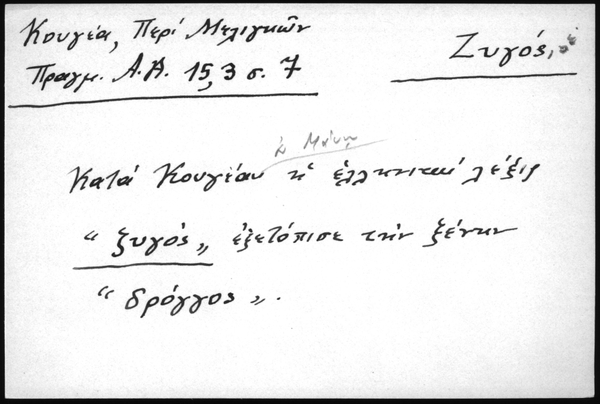 Κουγέα, Περί Μελιγκῶν
Ζυγός,
Πραγμ. Α.Α. 15,3 σ. 7
ἐν Μάνῃ
Κατά Κουγέαν ἡ ἑλληνική λέξις
“ ζυγός „ ἐξετόπισε τήν ξένην
“ δρόγγος „.